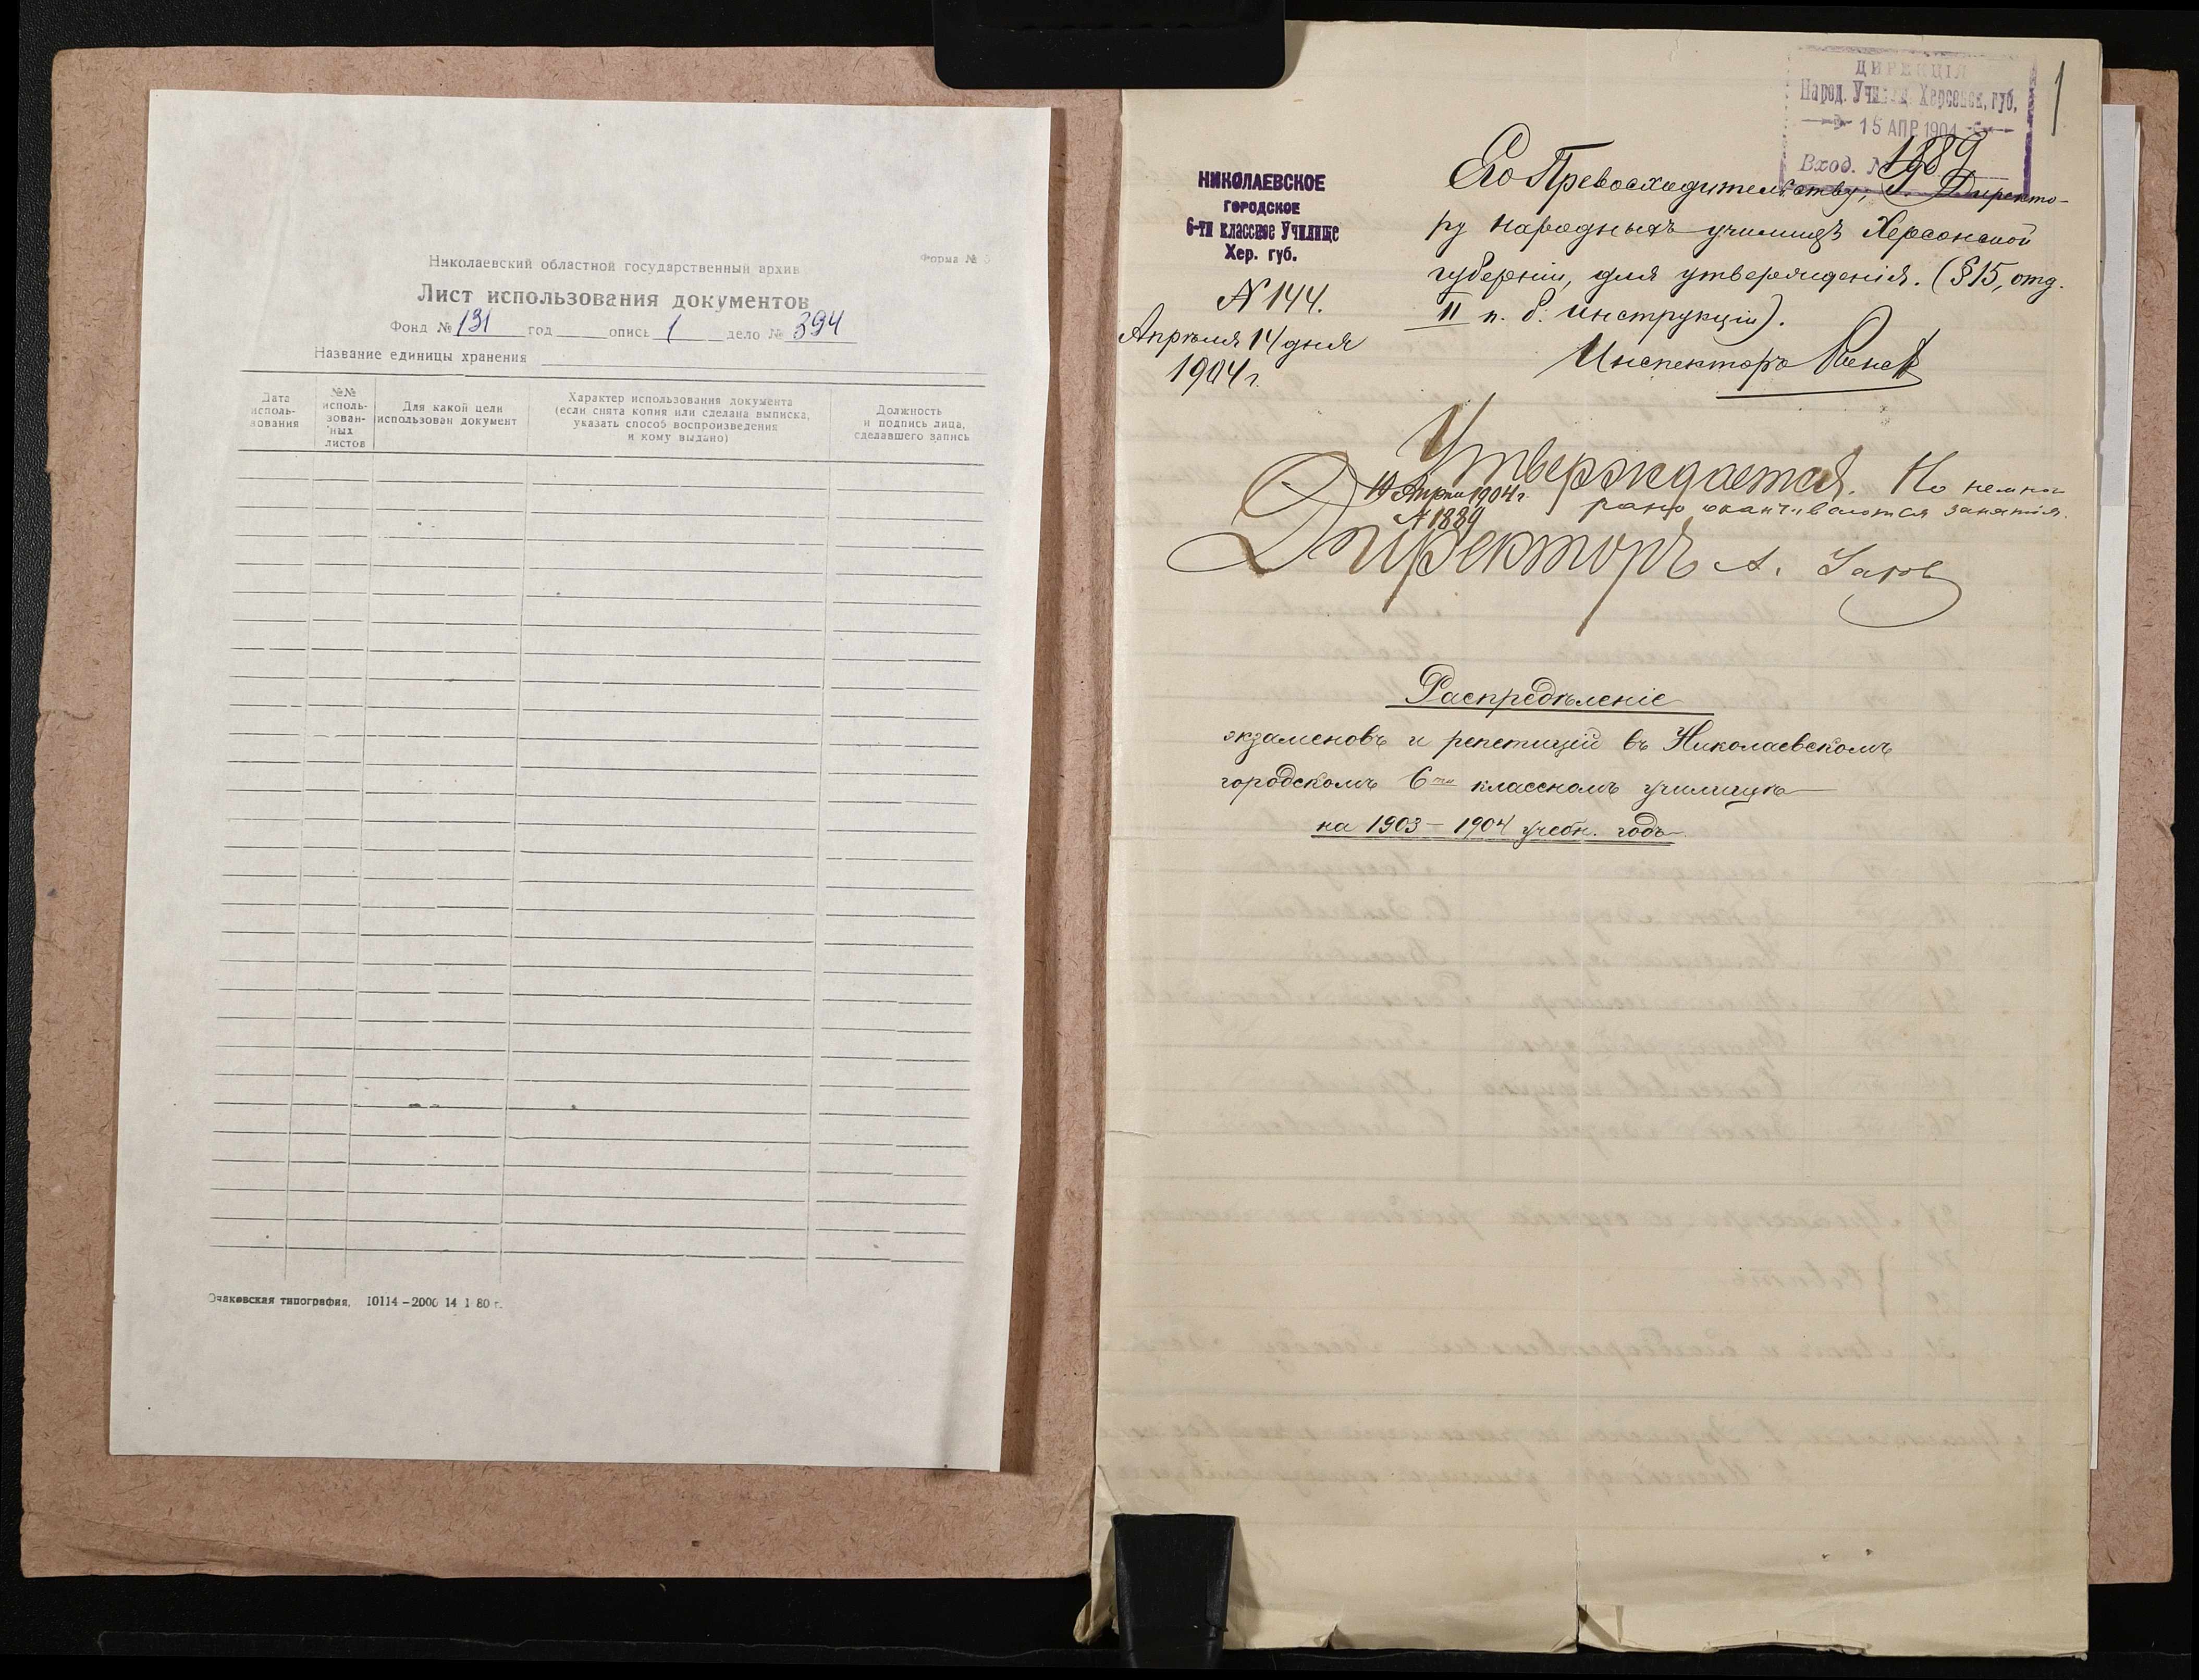 Николаевский областной государственный архив
Форма № 5
Лист использования документов
Фонд № 131 год опись 1 дело № 394
Название единицы хранения
Дата исполь-зования
№№ исполь-зован-ных листов
Для какой цели использован документ
Характер использования документа (если снята копия или сделана выписка, указать способ воспроизведения и кому выдано)
Должность и подпись лица, сделавшего запись
Очаковская типография, 10114-2000 14 1 80 г.
1
ДИРЕКЦІЯ
Народ. Училищ Херсонск. губ.
15 АПР 1904
Вход. № 1889
НИКОЛАЕВСКОЕ
ГОРОДСКОЕ
6-ти классное Училище
Хер. губ.
№ 144.
Апрѣля 14 дня
1904 г.
Его Превосходительству, Г. Директо-
ру народныхъ училищъ Херсонской
губерніи, для утвержденія. (§ 15, отд.
II п. б. инструкціи).
Инспекторъ
Утверждается. Но немного
рано оканчиваются занятія.
19 Апрѣля 1904 г.
№ 1889
Директоръ А.
Распредѣленіе
экзаменовъ и репетицій въ Николаевскомъ
городскомъ 6ти классномъ училищѣ
на 1903-1904 учебн. годъ